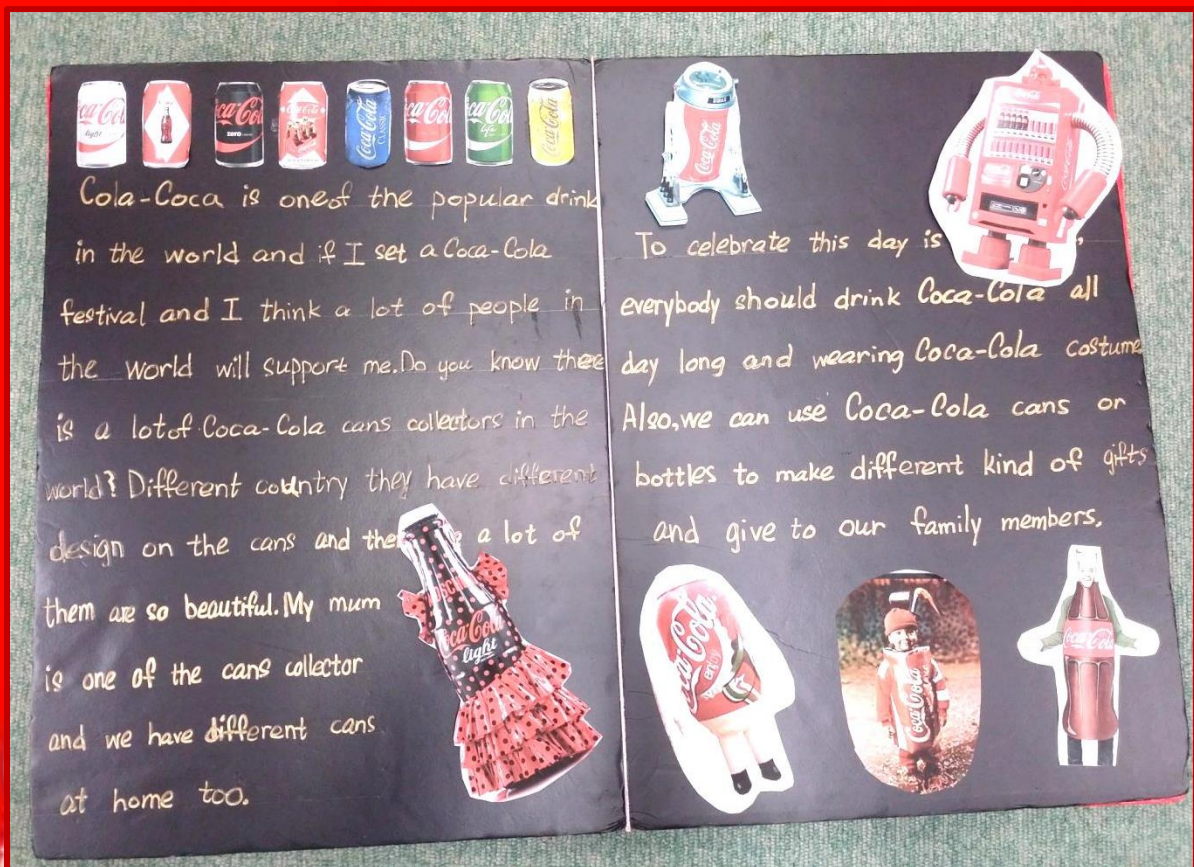 Coca-Cola light
Coca-Cola zero
Coca-Cola
Coca-Cola CLASSIC
Coca-Cola
Coca-Cola life
Coca-Cola
Cola-Coca is one of the popular drink
in the world and if I set a Coca-Cola
festival and I think a lot of people in
the world will support me. Do you know there
is a lot of Coca-Cola cans collectors in the
world? Different country they have different
design on the cans and a lot of
them are so beautiful. My mum
is one of the cans collector
and we have different cans
at home too.
Coca-Cola
light
Coca-Cola
Coca-Cola
To celebrate this day is
everybody should drink Coca-Cola all
day long and wearing Coca-Cola costume
Also, we can use Coca-Cola cans or
bottles to make different kind of gifts
and give to our family members.
Coca-Cola
enjoy
Coca-Cola
Coca-Cola